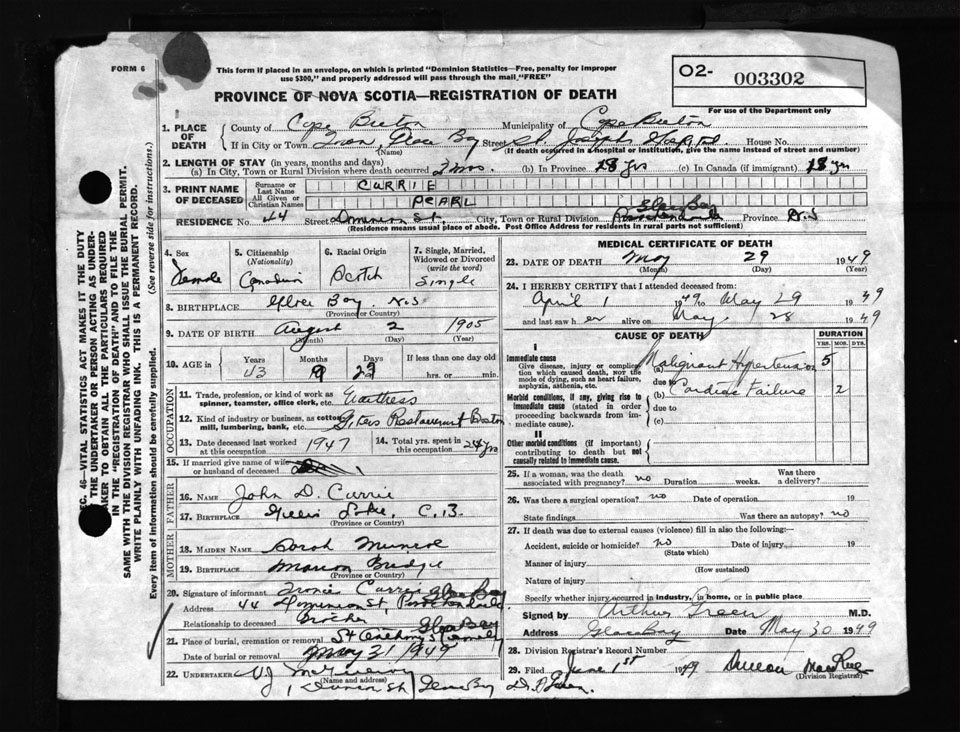 FORM 6
This form if placed in an envelope, on which is printed "Dominion Statistics—Free, penalty for improper
use $300," and properly addressed will pass through the mail "FREE"
O2- 003302
For use of the Department only
PROVINCE OF NOVA SCOTIA—REGISTRATION OF DEATH
SEC. 46—VITAL STATISTICS ACT MAKES IT THE DUTY
OF THE UNDERTAKER OR PERSON ACTING AS UNDER-
TAKER TO OBTAIN ALL THE PARTICULARS REQUIRED
IN THE "REGISTRATION OF DEATH" AND TO FILE THE
SAME WITH THE DIVISION REGISTRAR WHO SHALL ISSUE THE BURIAL PERMIT.
WRITE PLAINLY WITH UNFADING INK. THIS IS A PERMANENT RECORD.
Every item of information should be carefully supplied. (See reverse side for instructions.)
1. PLACE OF DEATH County of Cape Breton Municipality of Cape Breton
If in City or Town Glace Bay Street St. Joseph's Hospital House No.
(Name) (If death occurred in a hospital or institution, give the name instead of street and number)
2. LENGTH OF STAY (in years, months and days)
(a) In City, Town or Rural Division where death occurred 2 mos. (b) In Province 18 yrs (c) In Canada (if immigrant) 18 yrs
3. PRINT NAME OF DECEASED Surname or Last Name CURRIE
All Given or Christian Names PEARL
RESIDENCE No. 44 Street Dominion St. City, Town or Rural Division Glace Bay Province N.S
(Residence means usual place of abode. Post Office Address for residents in rural parts not sufficient)
4. Sex Female
5. Citizenship (Nationality) Canadian
6. Racial Origin Scotch
7. Single, Married, Widowed or Divorced (write the word) Single
8. BIRTHPLACE Glace Bay N.S
(Province or Country)
9. DATE OF BIRTH August 2 1905
(Month) (Day) (Year)
10. AGE in Years 43 Months 9 Days If less than one day old hrs. or min.
OCCUPATION
11. Trade, profession or kind of work as spinner, teamster, office clerk, etc. Waitress
12. Kind of industry or business, as cotton mill, lumbering, bank, etc. Restaurant Boston
13. Date deceased last worked at this occupation 1947
14. Total yrs. spent in this occupation 24 yrs
15. If married give name of wife or husband of deceased
FATHER
16. NAME John D. Currie
17. BIRTHPLACE Gillis Lake, C.B.
(Province or Country)
MOTHER
18. MAIDEN NAME Sarah Munroe
19. BIRTHPLACE Marion Bridge
(Province or Country)
20. Signature of informant Currie Glace Bay
Address 44 Dominion St, Passchendaele
Relationship to deceased Brother Glace Bay
21. Place of burial, cremation or removal St Anthony's Cemetery
Date of burial or removal May 31 1949
22. UNDERTAKER VJ
(Name and address)
St Glace Bay
MEDICAL CERTIFICATE OF DEATH
23. DATE OF DEATH May 29 1949
(Month) (Day) (Year)
24. I HEREBY CERTIFY that I attended deceased from:
April 1 1949 to May 29 1949
and last saw her alive on May 28 1949
CAUSE OF DEATH
DURATION
YRS. MOS. DYS.
I
Immediate cause
Give disease, injury or complication which caused death, NOT the mode of dying, such as heart failure, asphyxia, asthenia, etc.
(a) Malignant Hypertension 5
due to
Morbid conditions, if any, giving rise to immediate cause (stated in order proceeding backwards from immediate cause).
(b) Cardiac Failure 2
due to
(c)
II
Other morbid conditions (if important) contributing to death but not causally related to immediate cause.
25. If a woman, was the death associated with pregnancy? no Duration weeks. Was there a delivery?
26. Was there a surgical operation? no Date of operation 19
State findings Was there an autopsy? no
27. If death was due to external causes (violence) fill in also the following:—
Accident, suicide or homicide? no Date of injury 19
(State which)
Manner of injury
(How sustained)
Nature of injury
Specify whether injury occurred in industry, in home, or in public place
Signed by Arthur Green M.D.
Address Glace Bay Date May 30 1949
28. Division Registrar's Record Number
29. Filed June 1st 1949 Duncan MacRae
(Division Registrar)